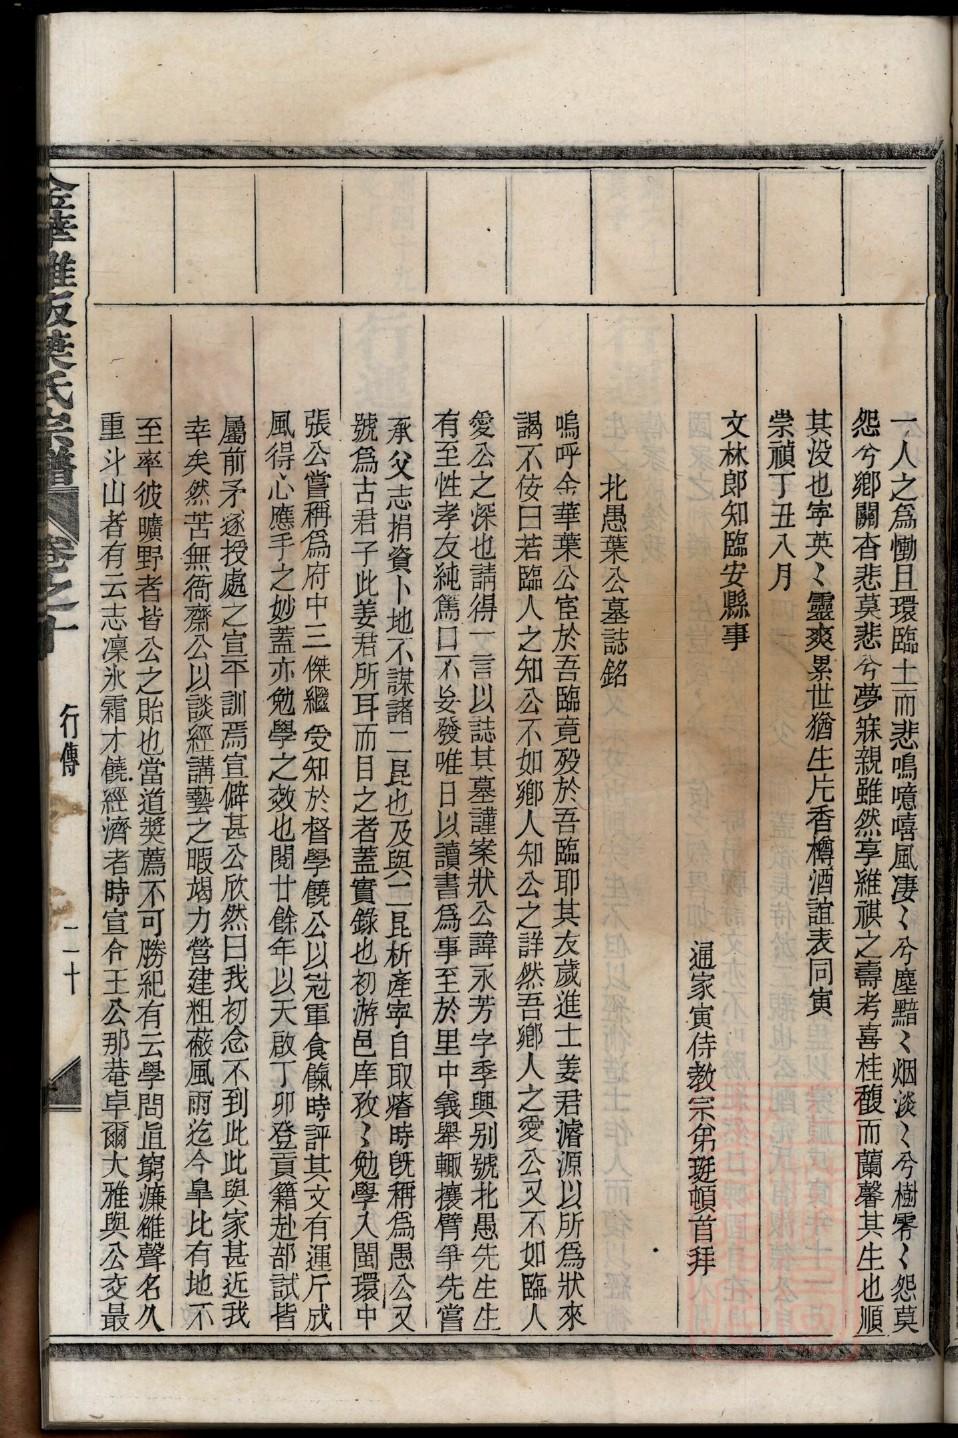 一人之爲慟且環臨土而悲鳴噫嘻風凄〻兮塵黯〻烟淡〻兮樹零〻怨莫
怨兮鄉關杳悲莫悲兮夢寐親雖然享維祺之壽考喜桂馥而蘭馨其生也順
其没也寕英〻靈爽累世猶生片香樽酒誼表同寅
崇禎丁丑八月
文林郎知臨安縣事
通家寅侍教宗弟珽頓首拜
北愚葉公墓誌銘
嗚呼金華葉公宦於吾臨竟殁於吾臨耶其友歲進士姜君濬源以所爲狀來
謁不佞曰若臨人之知公不如鄉人知公之詳然吾鄉人之愛公又不如臨人
愛公之深也請得一言以誌其墓謹案狀公諱永芳字季興别號北愚先生生
有至性孝友純篤口不妄發唯日以讀書爲事至於里中義舉輙攘臂爭先嘗
承父志捐資卜地不謀諸二昆也及與二昆析產寕自取瘠時旣稱爲愚公又
號爲古君子此姜君所耳而目之者蓋實錄也初游邑庠孜〻勉學人閩環中
張公嘗稱爲府中三傑繼受知於督學饒公以冠軍食餼時評其文有運斤成
風得心應手之妙蓋亦勉學之效也閱廿餘年以天啟丁卯登貢籍赴部試皆
屬前矛遂授處之宣平訓焉宣僻甚公欣然曰我初念不到此此與家甚近我
幸矣然苦無衙齋公以談經講藝之暇竭力營建粗蔽風雨迄今臯比有地不
至率彼曠野者皆公之貽也當道奬薦不可勝紀有云學問眞窮濂雒聲名久
重斗山者有云志凜氷霜才饒經濟者時宣令王公那菴卓爾大雅與公交最
金華雅畈葉氏宗譜 卷之十 行傳 二十